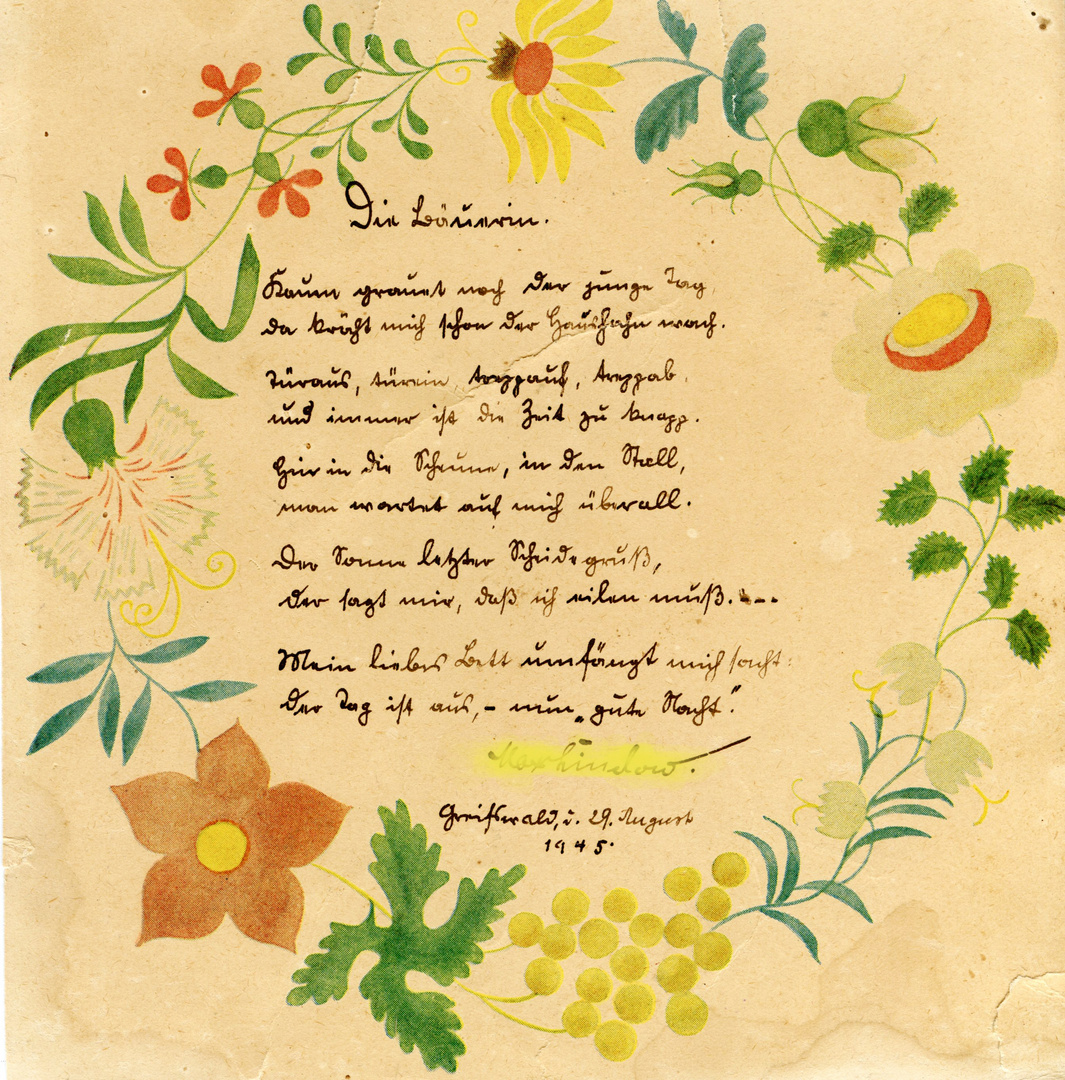 Die Bäuerin.
Kaum grauet noch der junge Tag,
da kräht mich schon der Haushahn wach.
Türaus, türein, treppauf, treppab,
und immer ist die Zeit zu knapp.
Hin in die Scheune, in den Stall,
man wartet auf mich überall.
Der Sonne letzter Scheidegruß,
der sagt mir, daß ich eilen muß.---
Mein liebes Bett umfängt mich sacht:
der Tag ist aus,- nun „gute Nacht".
Greifswald, d. 29. August
1945.